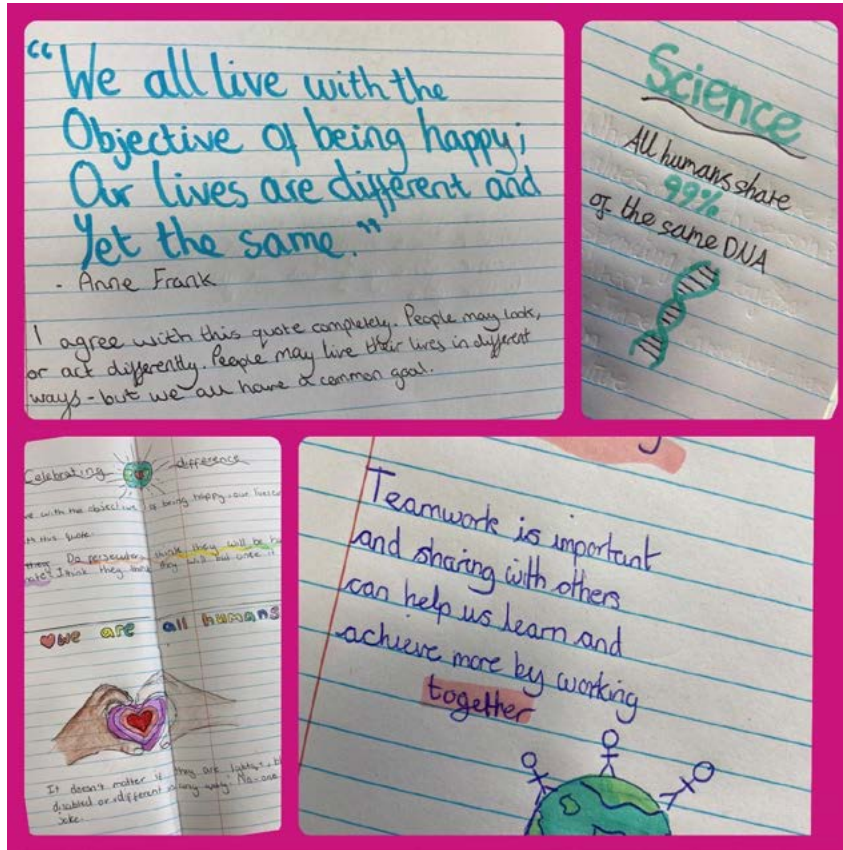 “We all live with the
Objective of being happy;
Our lives are different and
Yet the same.”
- Anne Frank
I agree with this quote completely. People may look,
or act differently. People may live their lives in different
ways - but we all have a common goal.
Science
All humans share
99%
of the same DNA
Celebrating difference
with the objective of being happy, our lives
this quote.
they Do persecutors think they will be
I think they think they will but once it
we are all humans
It doesn't matter if they are
disabled or different in any way! No-one
joke.
Teamwork is important
and sharing with others
can help us learn and
achieve more by working
together